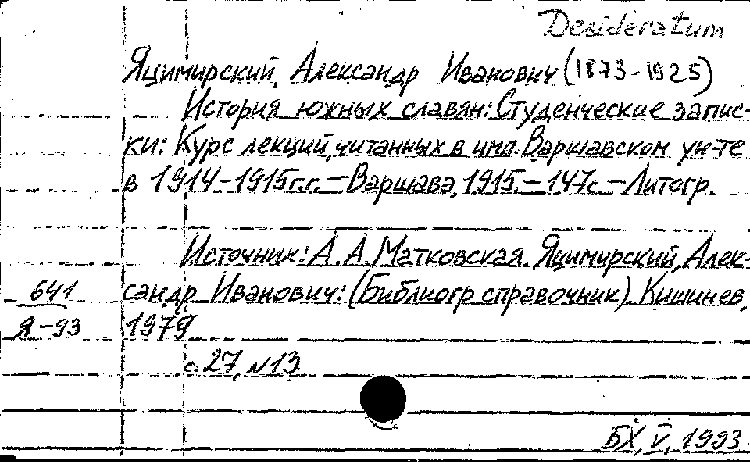 Desideratum
Яцимирский, Александр Иванович (1873-1925)
История южных славян: Студенческие запис-
ки: Курс лекций, читанных в имп. Варшавском ун-те
в 1914-1915 г.г. – Варшава, 1915. – 147с. – Литогр.
Источник: А.А. Матковская. Яцимирский, Алек-
641 сандр Иванович: (Библиогр. справочник). Кишинев,
Я-93 1979
с. 27, №13
БХ, V, 1993